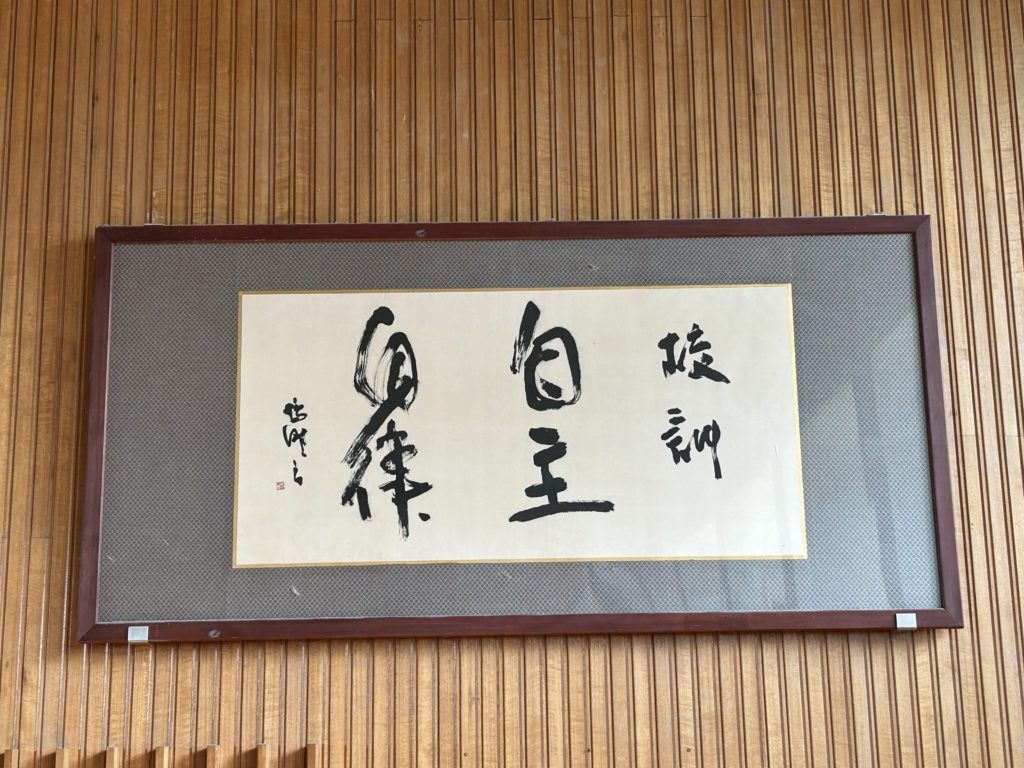 校訓
自主
自律